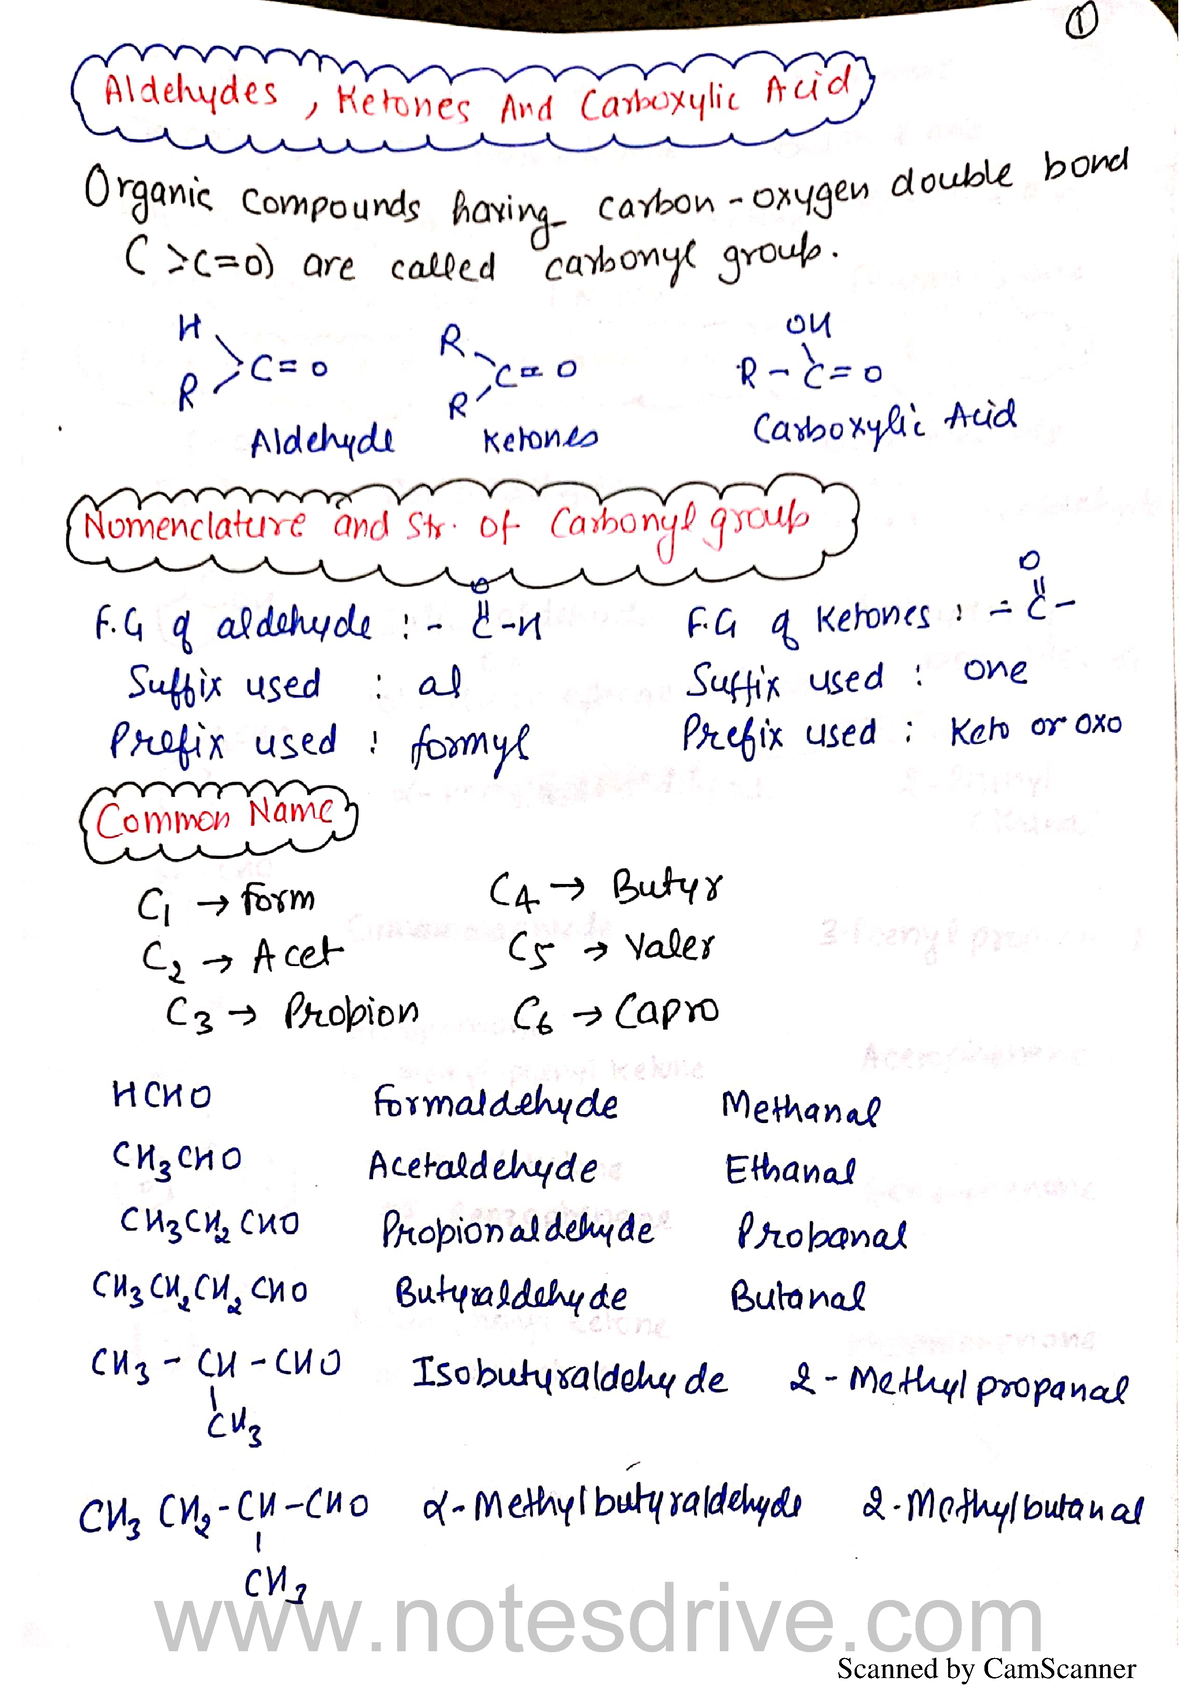 1
Aldehydes, Ketones And Carboxylic Acid
Organic compounds having carbon-oxygen double bond
( >C=O) are called carbonyl group.
H R OH
C=O C=O R-C=O
R R
Aldehyde Ketones Carboxylic Acid
Nomenclature and Str. of Carbonyl group
O O
F.G of aldehyde :- C-H F.G of Ketones : -C-
Suffix used : al Suffix used : one
Prefix used : formyl Prefix used : Keto or oxo
Common Name
C1 → form C4 → Butyr
C2 → Acet C5 → Valer
C3 → Propion C6 → Capro
HCHO Formaldehyde Methanal
CH3CHO Acetaldehyde Ethanal
CH3CH2CHO Propionaldehyde Propanal
CH3CH2CH2CHO Butyraldehyde Butanal
CH3-CH-CHO Isobutyraldehyde 2-Methylpropanal
CH3
CH3CH2-CH-CHO α-Methylbutyraldehyde 2-Methylbutanal
CH3
www.notesdrive.com
Scanned by CamScanner